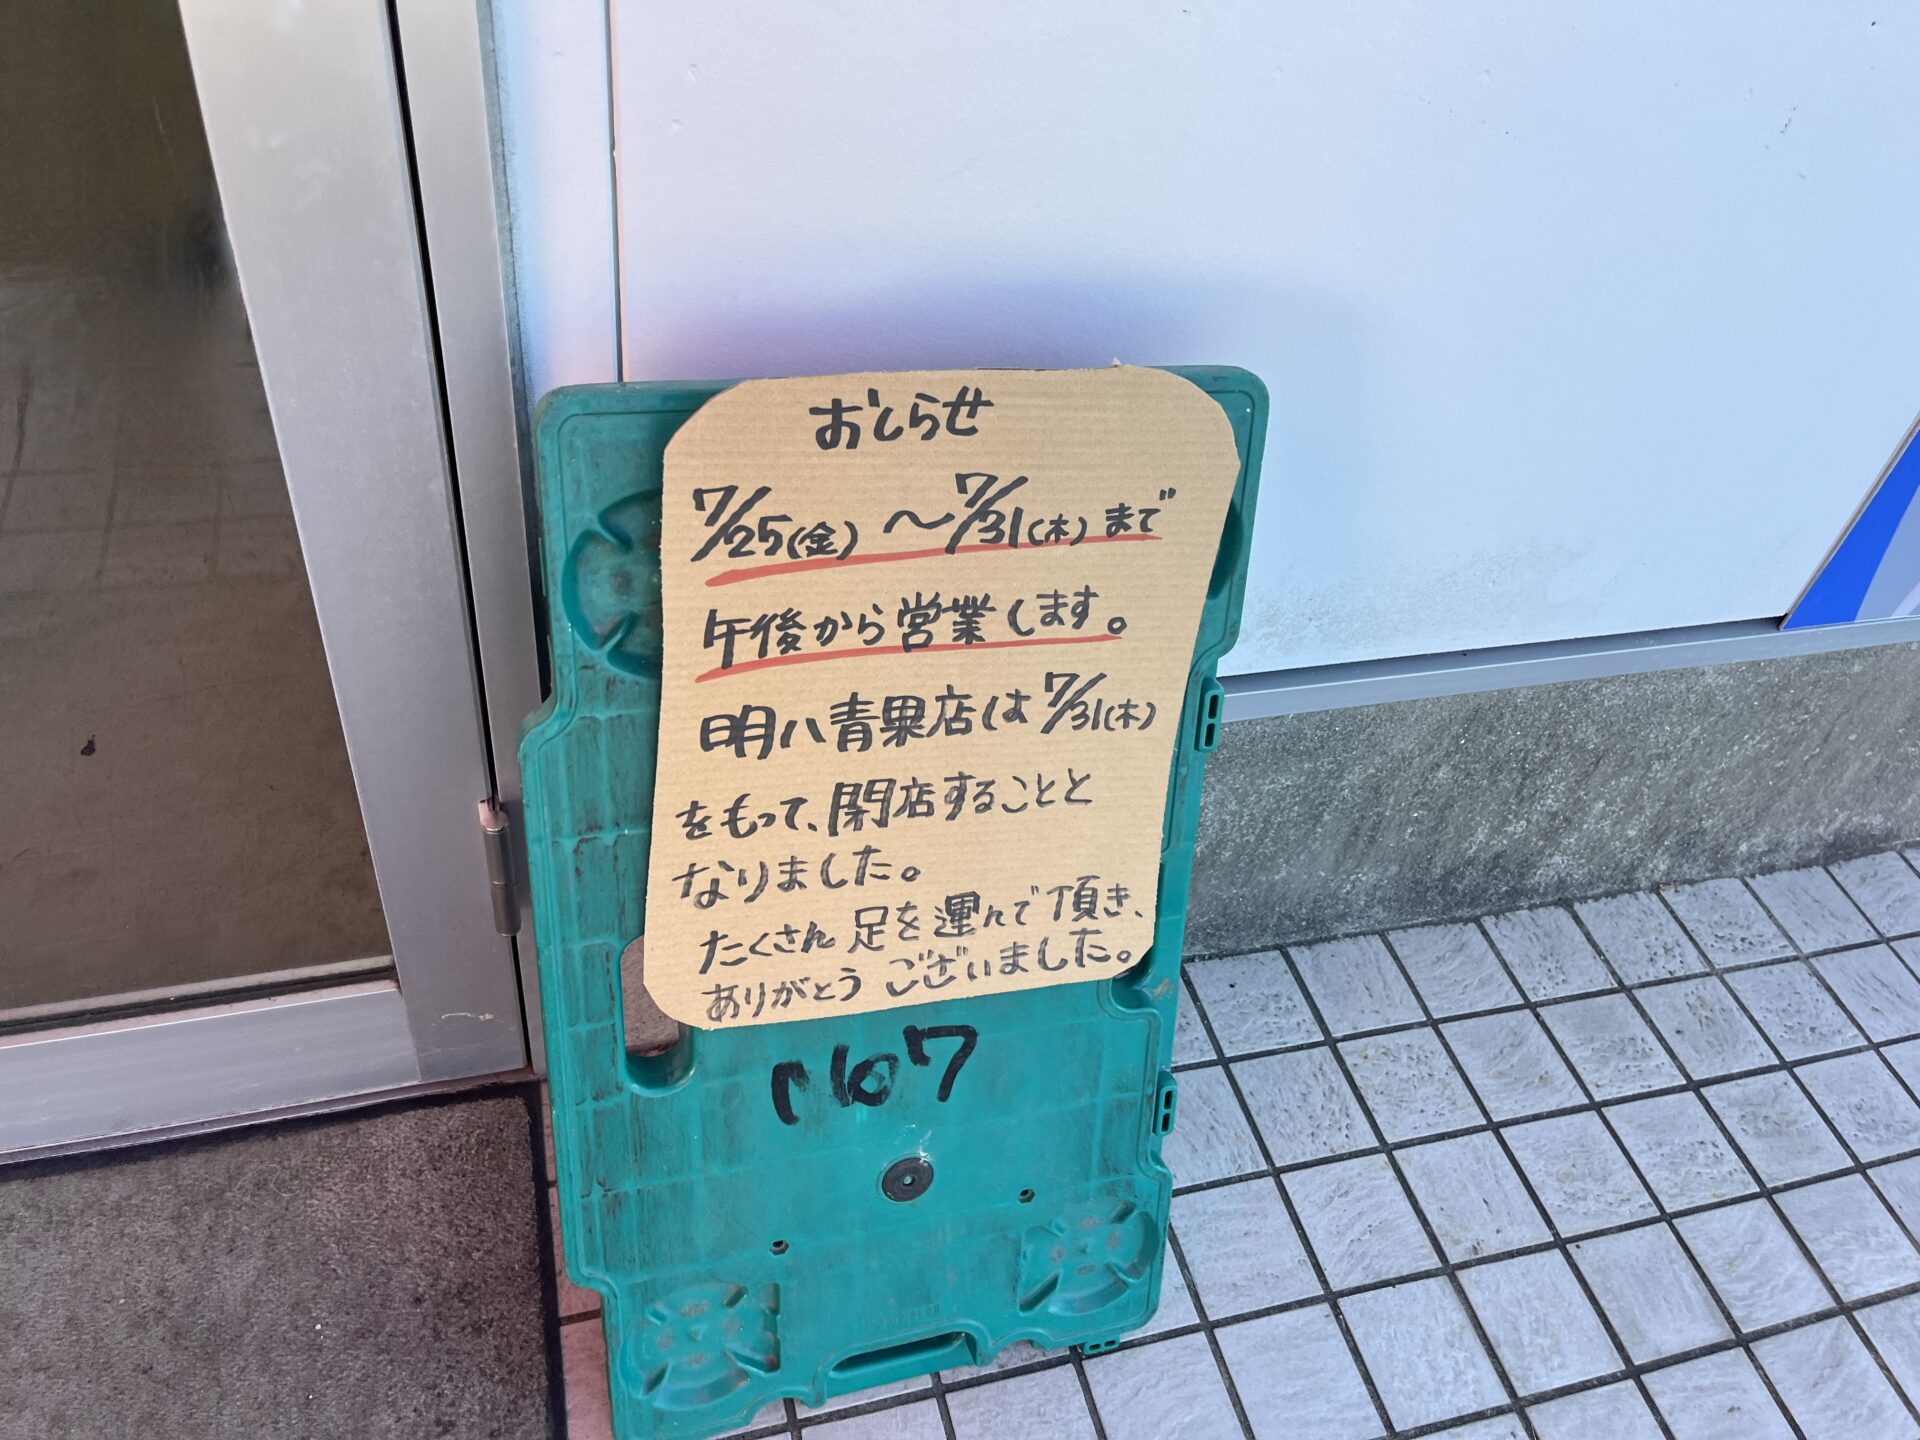 おしらせ
7/25(金)～7/31(木)まで
午後から営業します。
明八青果店は7/31(木)
をもって、閉店することと
なりました。
たくさん足を運んで頂き、
ありがとうございました。